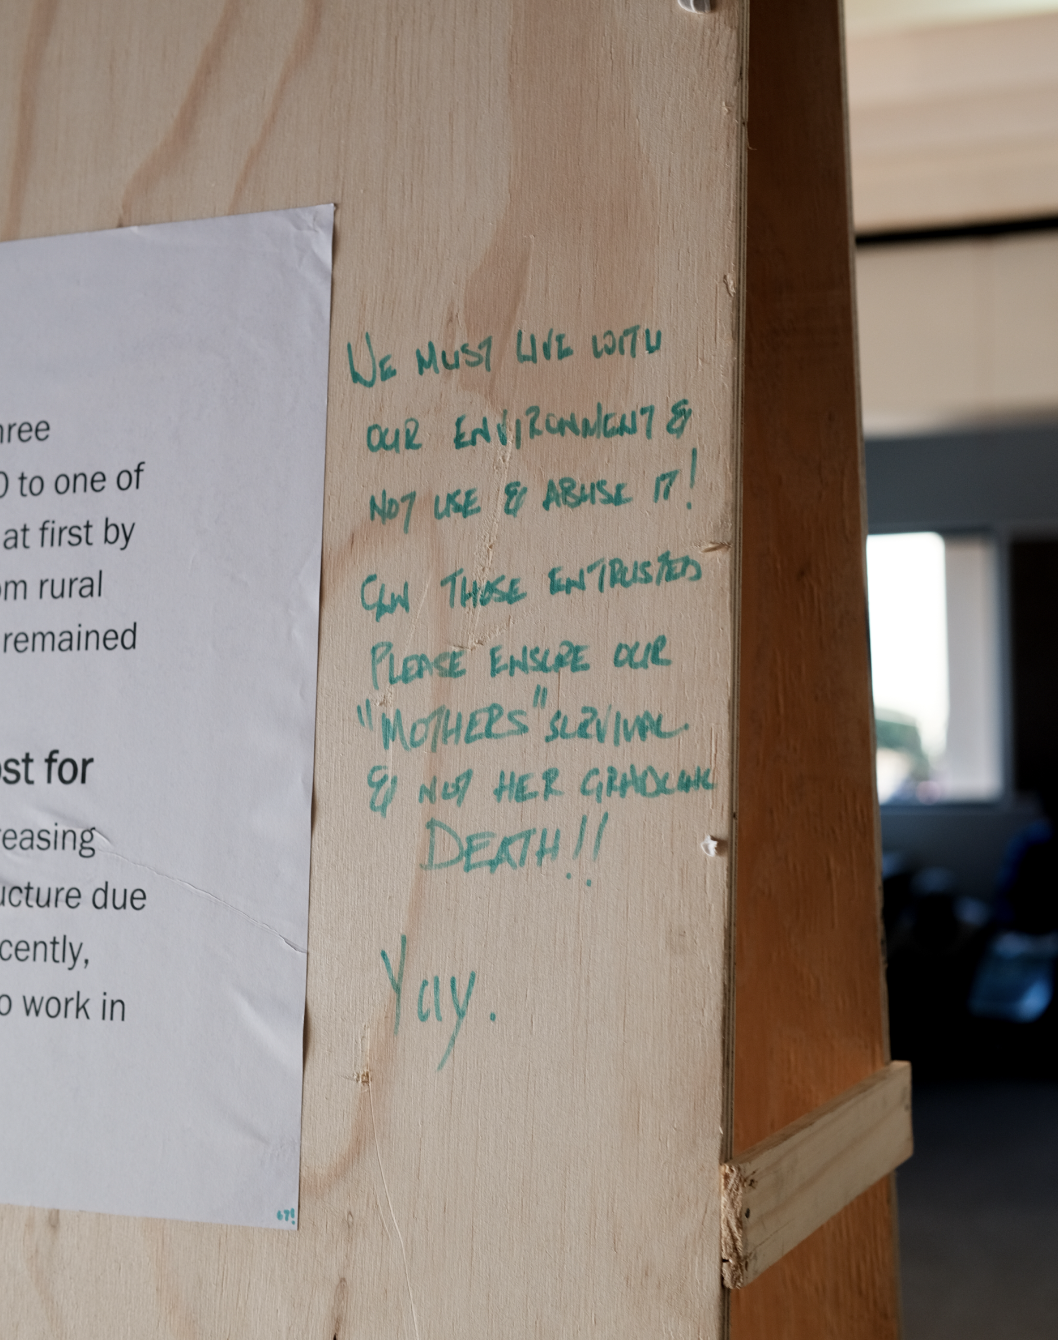 hree
0 to one of
at first by
om rural
remained
ost for
reasing
ucture due
cently,
o work in
WE MUST LIVE WITH
OUR ENVIRONMENT &
NOT USE & ABUSE IT!
CAN THOSE ENTRUSTED
PLEASE ENSURE OUR
"MOTHERS" SURVIVAL
& NOT HER GRADUAL
DEATH!!
Yay.